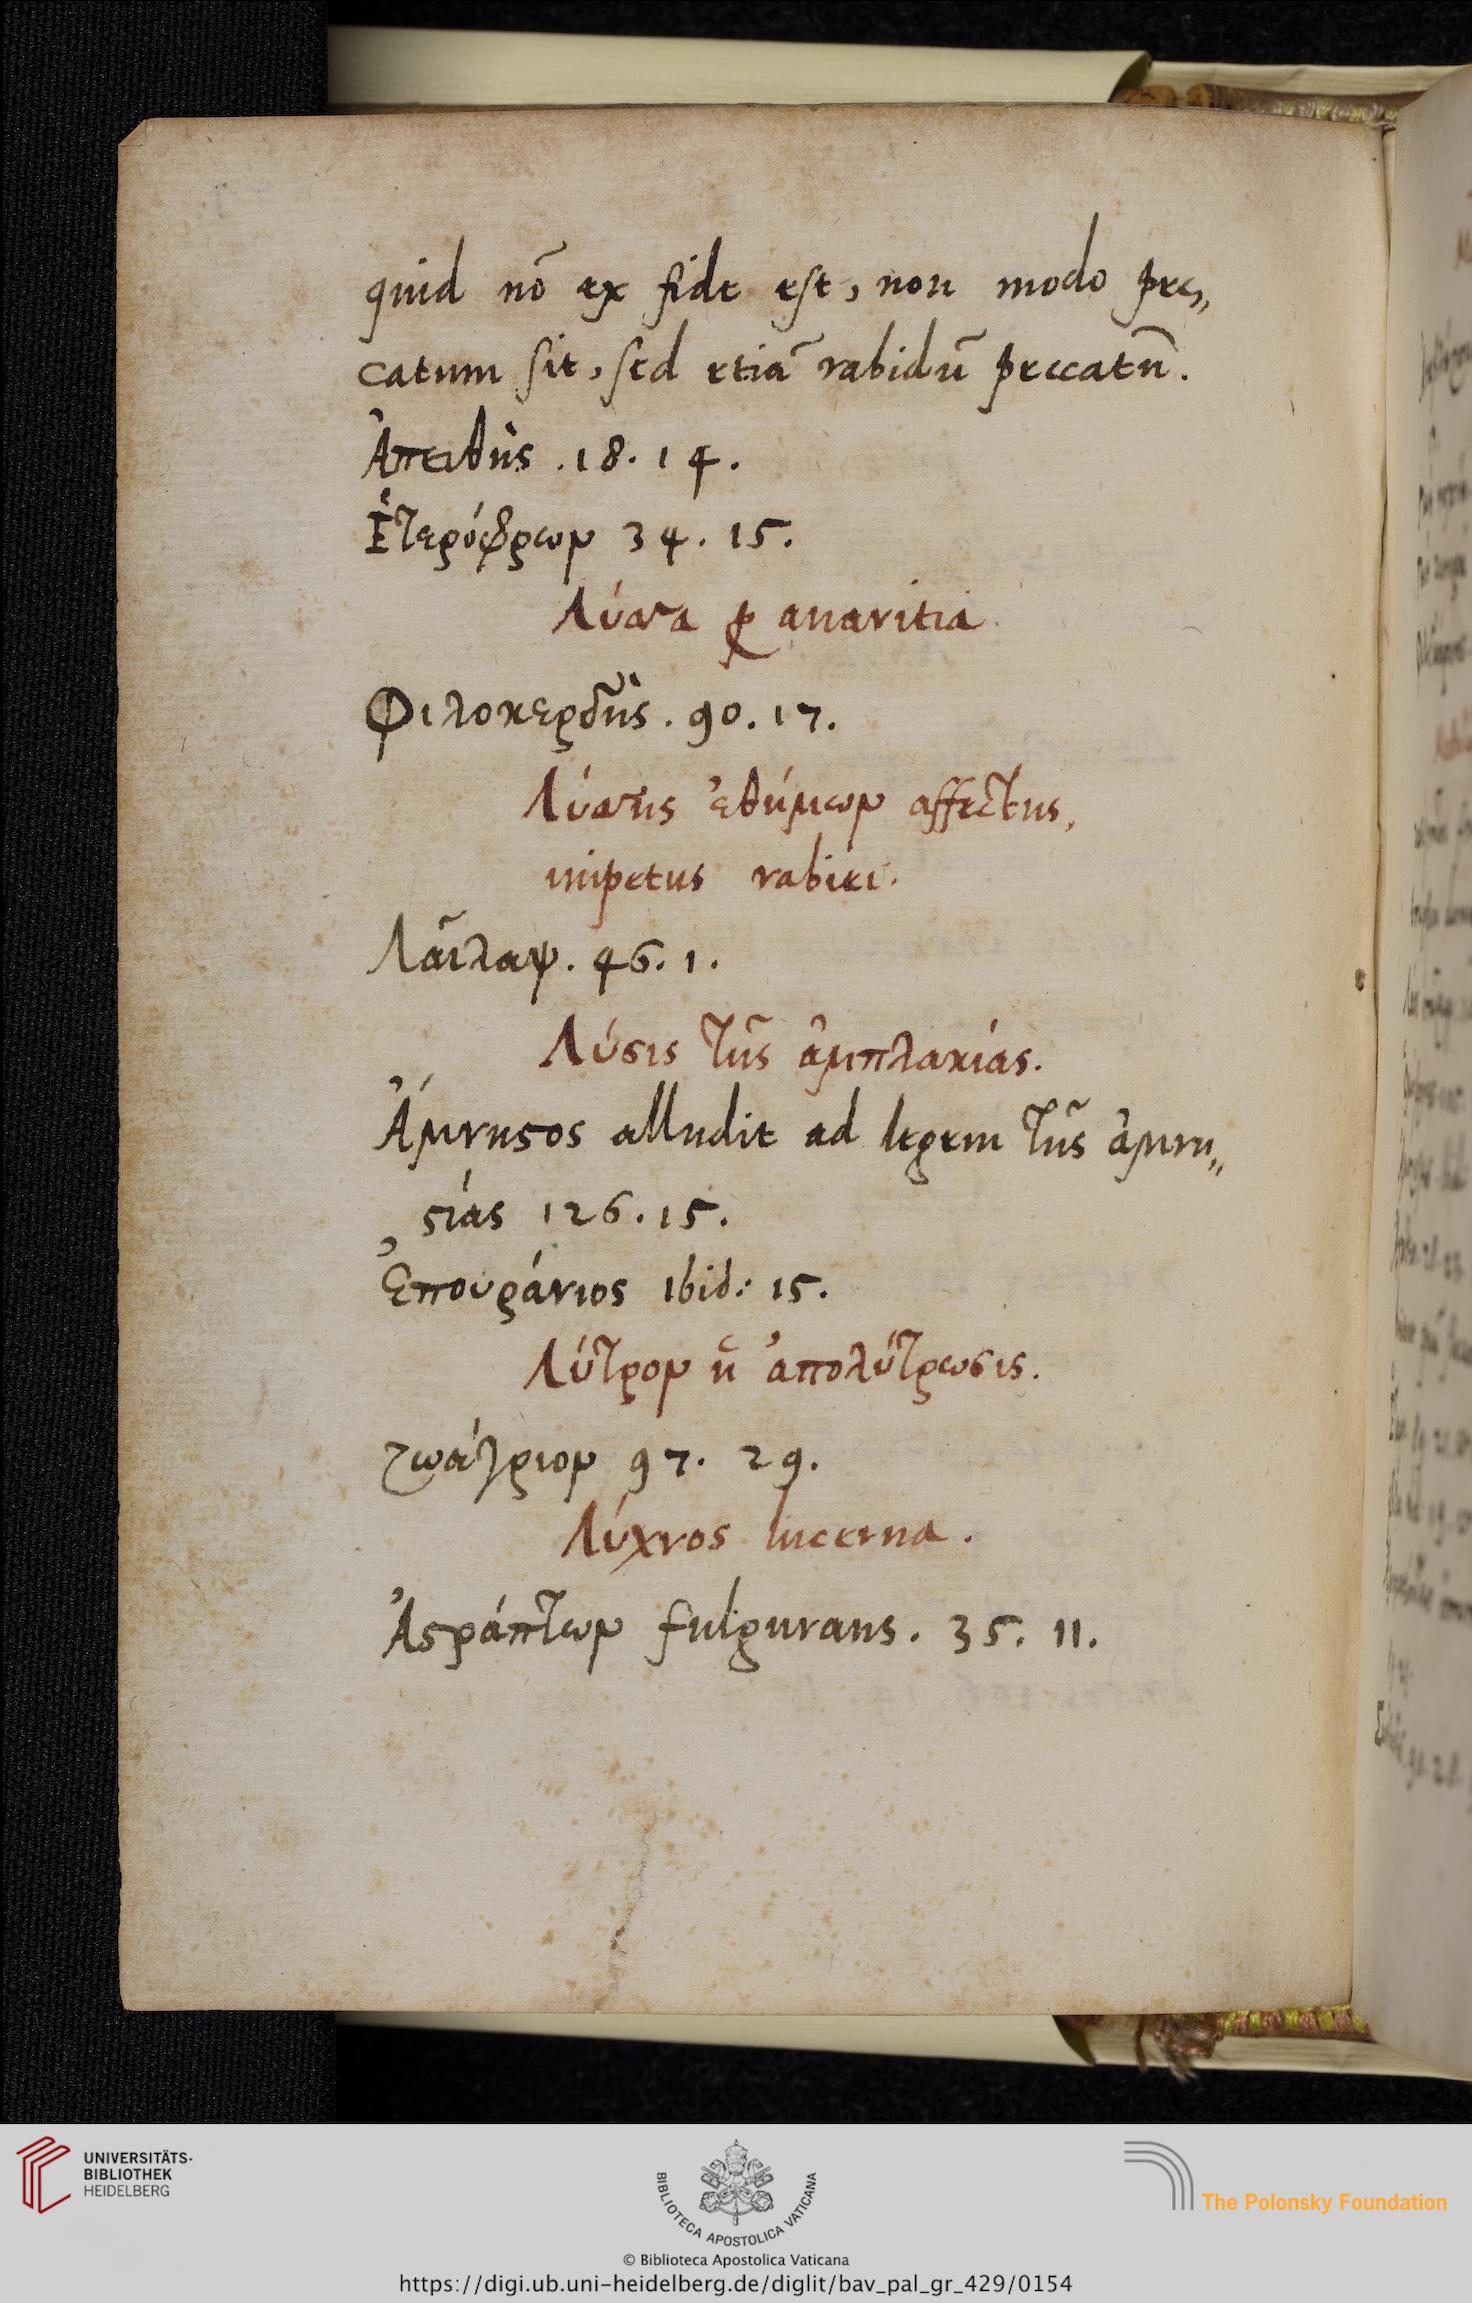 quid nō ex fide est, non modo pec„
catum sit, sed etiā rabidū peccatū.
Ἀπειθὴς . 18. 14.
Ἑτερόφρων 34. 15.
Λύσσα ꝓ auaritia.
Φιλοκερδὴς . 90. 17.
Λύσσης ἐθήμων affectus,
impetus rabiei.
Λᾶιλαψ. 46. 1.
Λύσις τῆς ἀμπλακίας.
Ἄμνηστος alludit ad legem τῆς ἀμνη„
στίας 126. 15.
Ἐπουράνιος ibid: 15.
Λύτρον ἢ ἀπολύτρωσις.
ζωάγριον 97. 29.
Λύχνος lucerna.
Ἀστράπτων fulgurans. 35. 11.
UNIVERSITÄTS-
BIBLIOTHEK
HEIDELBERG
BIBLIOTECA APOSTOLICA VATICANA
The Polonsky Foundation
© Biblioteca Apostolica Vaticana
https://digi.ub.uni-heidelberg.de/diglit/bav_pal_gr_429/0154